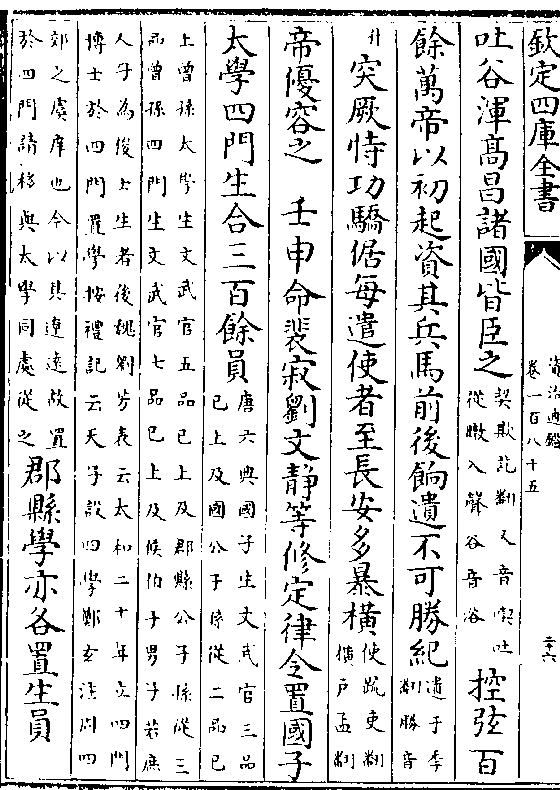 欽定四庫全書
資治通鑑
卷一百八十五
吐谷渾高昌諸國皆臣之契欺訖翻又音喫吐從暾入聲谷音浴控弦百
餘萬帝以初起資其兵馬前後餉遺不可勝紀遺于季翻勝音
升突厥恃功驕倨每遣使者至長安多暴横使疏吏翻横户孟翻
帝優容之 壬申命裴寂劉文静等修定律令置國子
太學四門生合三百餘員唐六典國子生文武官三品已上及國公子孫從二品已
上曾孫太學生文武官五品已上及郡縣公子孫從三品曾孫四門生文武官七品已上及侯伯子男子若庶
人子為俊士生者後魏劉芳表云太和二十年立四門博士於四門置學按禮記云天子設四學鄭玄注周四
郊之虞庠也今以其遼遠故置於四門請移與太學同處從之郡縣學亦各置生員